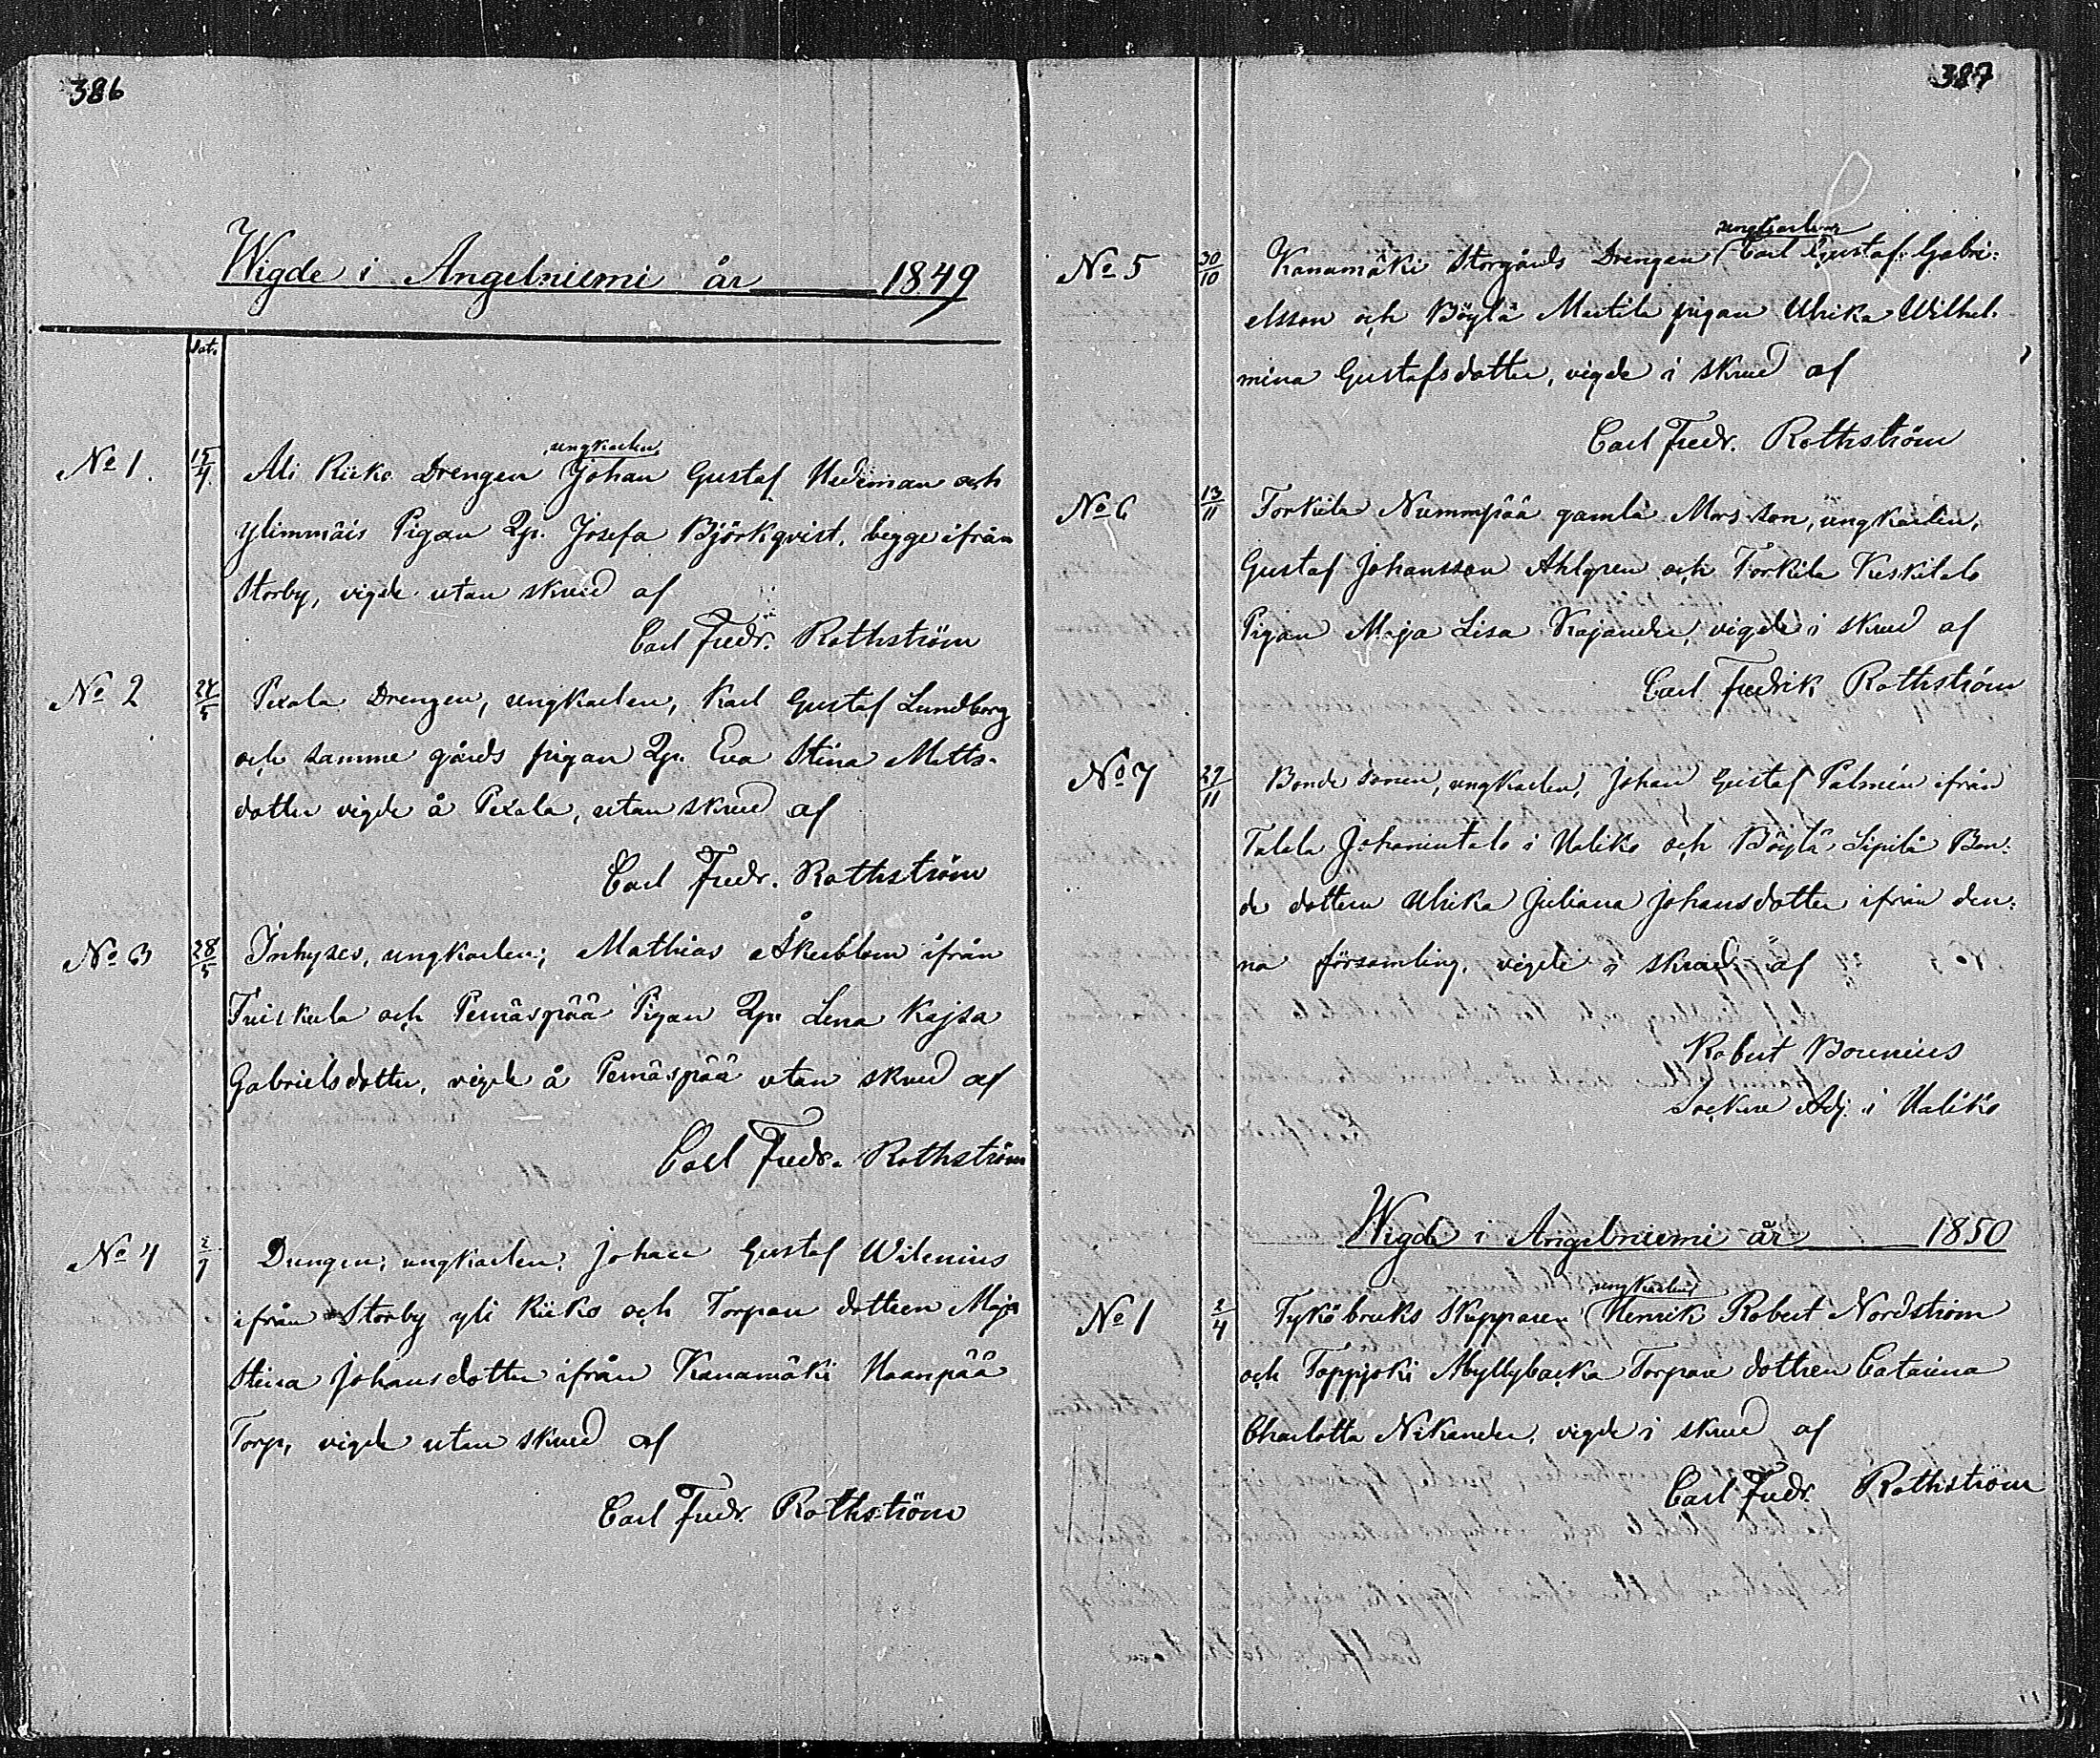 386
Wigde i Angelniemi år 1849
Dat.
No 1. 15/4 Ali Kiiko Drengen ungkarlen Johan Gustaf Hedeman och
Ylimmäis Pigan Qp. Josefa Björkqvist, begge ifrån
Storby, vigde utan skrud af
Carl Fredr. Rothström
No 2 24/5 Pexala Drengen, ungkarlen, Karl Gustaf Lundborg
och samme gårds pigan Qp. Eva Stina Matts-
dotter vigde å Pexala, utan skrud af
Carl Fredr. Rothström
No 3 28/5 Inhyses, ungkarlen, Mathias Åkerblom ifrån
Friskula och Pernäspää Pigan Qp. Lena Kajsa
Gabrielsdotter, vigde å Pernäspää utan skrud af
Carl Fredr. Rothström
No 4 Drengen, ungkarlen, Johan Gustaf Wilenius
ifrån Storby yli Kiiko och Torpare dottren Maja
Stina Johansdotter ifrån Kanamäki Haanpää
Torp, vigde utan skrud af
Carl Fredr. Rothström
387
No 5 30/10 Kanamäki Storgårds Drengen ungkarlen Carl Gustaf Gabri-
elsson och Böylä Mattila pigan Ulrika Wilhel-
mina Gustafsdotter, vigde i skrud af
Carl Fredr. Rothström
No 6 13/11 Torkila Nummpää gamla Mors son, ungkarlen,
Gustaf Johansson Ahlgren och Torkila Keskitalo
Pigan Maja Lisa Kajander, vigde i skrud af
Carl Fredrik Rothström
No 7 27/11 Bonde sonen, ungkarlen, Johan Gustaf Palmén ifrån
Talola Johanintalo i Haliko och Böylä Sipilä Bon-
de dottern Ulrika Juliana Johansdotter ifrån den-
na församling, vigde i skrud af
Robert Bonnéus
Sockne Adj. i Haliko
Wigde i Angelniemi år 1850
No 1 2/4 Tykö bruks Skepparen ungkarlen Henrik Robert Nordström
och Toppjoki Myllybacka Torpare dottren Catarina
Charlotta Nikander, vigde i skrud af
Carl Fredr. Rothström